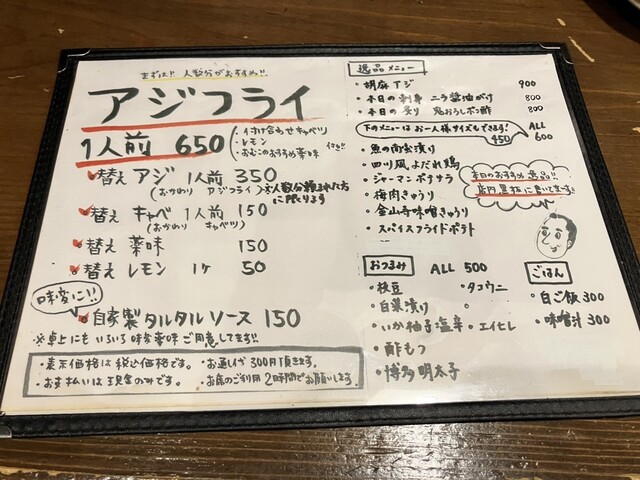 まずは!! 人数分がおすすめ!!
アジフライ
1人前 650
・付け合わせキャベツ
・レモン
・おむこのおすすめ薬味 付き!!
替え アジ 1人前 350
(おかわり アジフライ) ※人数分頼まれた方に限ります
替え キャベ 1人前 150
(おかわり キャベツ)
替え 薬味 150
替え レモン 1ケ 50
味変に!!
自家製タルタルソース 150
※卓上にもいろいろ味変薬味ご用意してます!!
・表示価格は税込価格です。 ・お通し代300円頂きます。
・お支払いは現金のみです。 ・お席のご利用2時間でお願いします。
逸品メニュー
・胡麻アジ 900
・本日の刺身 ニラ醤油がけ 800
・本日の炙り 鬼おろしポン酢 800
下のメニューはお一人様サイズもできます! 450
ALL 600
・魚の肉味噌漬け
・四川風よだれ鶏
・ジャーマンポテサラ
・梅肉きゅうり
・金山寺味噌きゅうり
・スパイスフライドポテト
本日のおすすめ逸品!!
店内黒板に書いてます!!
おつまみ ALL 500
・枝豆 ・タコウニ
・白菜漬け
・いか柚子塩辛 ・エイヒレ
・酢もつ
・博多明太子
ごはん
・白ご飯 300
・味噌汁 300